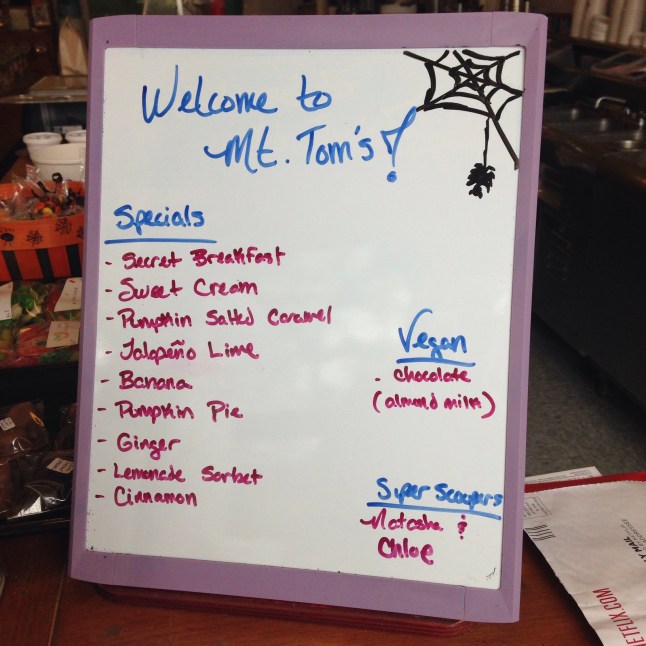 Welcome to
Mt. Tom's!
Specials
- Secret Breakfast
- Sweet Cream
- Pumpkin Salted Caramel
- Jalapeño Lime
- Banana
- Pumpkin Pie
- Ginger
- Lemonade Sorbet
- Cinnamon
Vegan
- chocolate
(almond milk)
Super Scoopers
Natasha &
Chloe
NETFLIX.COM